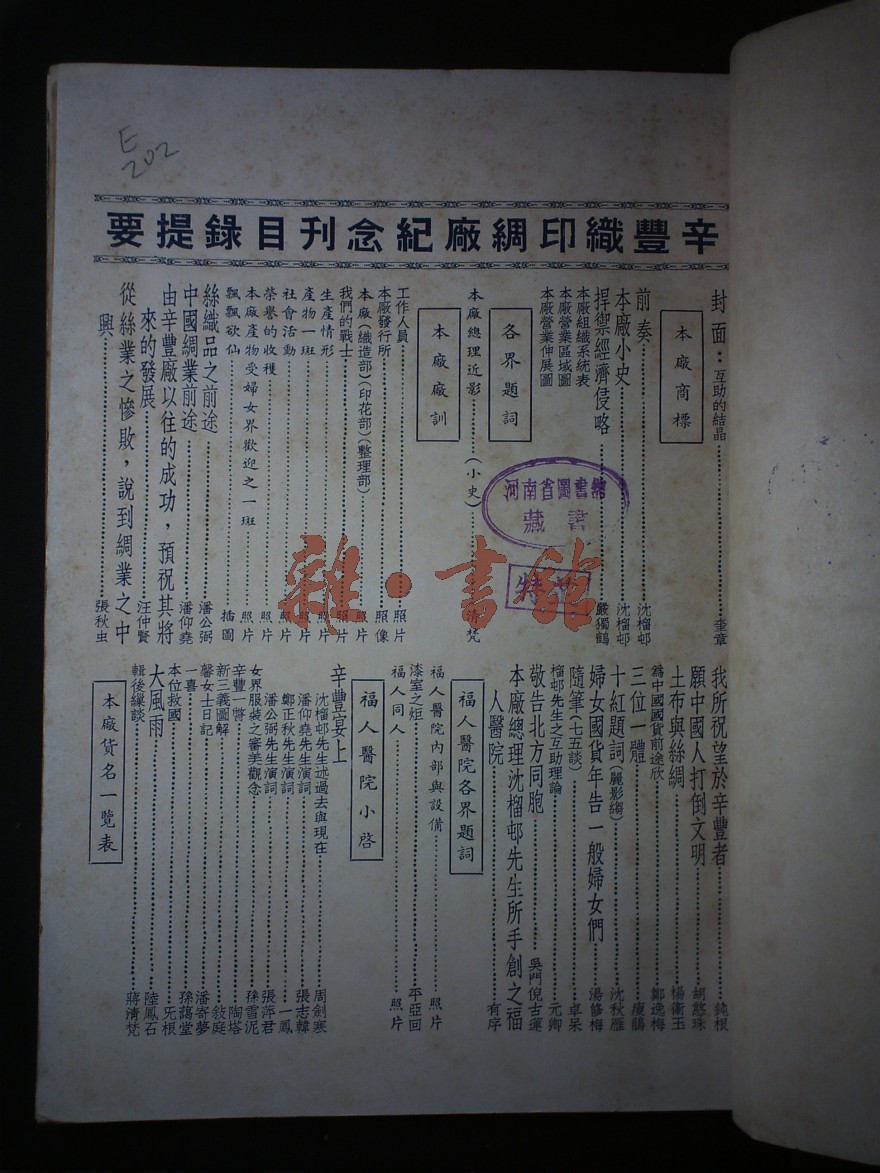 E
202
辛豐織印綢廠紀念刊目錄提要
封面：互助的結晶……奎章
本廠商標
前奏……沈榴邨
本廠小史……沈榴邨
捍禦經濟侵略……嚴獨鶴
本廠組織系統表
本廠營業區域圖
本廠營業伸展圖
各界題詞
本廠總理近影……(小史)……清梵
本廠廠訓
工作人員……照片
本廠發行所……照像
本廠(織造部)(印花部)(整理部)……照片
我們的戰士……照片
生產情形……照片
產物一斑……照片
社會活動……照片
榮譽的收穫……照片
本廠產物受婦女界歡迎之一斑……照片
飄飄欲仙……插圖
絲織品之前途……潘公弼
中國綢業前途……潘仰堯
由辛豐廠以往的成功，預祝其將
來的發展……汪仲賢
從絲業之慘敗，說到綢業之中
興……張秋虫
我所祝望於辛豐者……鈍根
願中國人打倒文明……胡憨珠
土布與絲綢……楊衞玉
為中國國貨前途欣……鄭逸梅
三位一體……瘦鵑
十紅題詞(麗影縐)……沈秋雁
婦女國貨年告一般婦女們……湯修梅
隨筆(七五談)……卓呆
榴邨先生之互助理論……元卿
敬告北方同胞……吳門倪古蓮
本廠總理沈榴邨先生所手創之福
人醫院……有序
福人醫院各界題詞
福人醫院內部與設備……照片
漆室之炬……平亞回
福人同人……照片
福人醫院小啓
辛豐宴上
沈榴邨先生述過去與現在……周劍寒
潘仰堯先生演詞……張志韓
鄭正秋先生演詞……一鳳
潘公弼先生演詞……張萍君
女界服裝之審美觀念……孫雪泥
辛豐一瞥……陶塔
新三義圖解……敍庭
馨女士日記……潘寄夢
一喜……孫藹堂
本位救國……旡根
大風雨……陸鳳石
輯後纍談……蔣清梵
本廠貨名一覽表
河南省圖書館
藏書
雜·書館